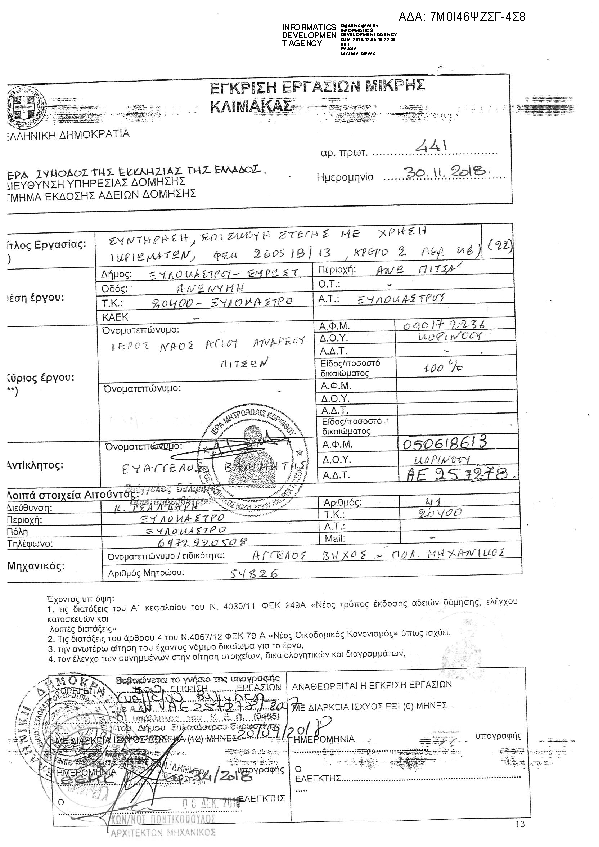 ΑΔΑ: 7Μ0Ι46ΨΖΣΓ-4Σ8
INFORMATICS
DEVELOPMEN
T AGENCY
ΕΓΚΡΙΣΗ ΕΡΓΑΣΙΩΝ ΜΙΚΡΗΣ
ΚΛΙΜΑΚΑΣ
ΕΛΛΗΝΙΚΗ ΔΗΜΟΚΡΑΤΙΑ
αρ. πρωτ. 441
ΙΕΡΑ ΣΥΝΟΔΟΣ ΤΗΣ ΕΚΚΛΗΣΙΑΣ ΤΗΣ ΕΛΛΑΔΟΣ
Ημερομηνία 30.11.2018
ΔΙΕΥΘΥΝΣΗ ΥΠΗΡΕΣΙΑΣ ΔΟΜΗΣΗΣ
ΤΜΗΜΑ ΕΚΔΟΣΗΣ ΑΔΕΙΩΝ ΔΟΜΗΣΗΣ
Τίτλος Εργασίας: ΣΥΝΤΗΡΗΣΗ, ΕΠΙΣΚΕΥΗ ΣΤΕΓΗΣ ΜΕ ΧΡΗΣΗ
ΙΚΡΙΩΜΑΤΩΝ, ΦΕΚ 2605/Β/13, ΑΡΘΡΟ 2
Δήμος: ΞΥΛΟΚΑΣΤΡΟΥ-ΕΥΡΩΣΤ. Περιοχή: ΑΝΩ ΠΙΤΣΑ
Οδός: ΑΝΩΝΥΜΗ Ο.Τ.: -
Θέση έργου: Τ.Κ.: 20400-ΞΥΛΟΚΑΣΤΡΟ Α.Τ.: ΞΥΛΟΚΑΣΤΡΟΥ
ΚΑΕΚ -
Ονοματεπώνυμο: Α.Φ.Μ.
ΙΕΡΟΣ ΝΑΟΣ ΑΓΙΟΥ ΑΝΔΡΕΟΥ Δ.Ο.Υ. ΚΟΡΙΝΘΟΥ
ΠΙΤΣΩΝ Α.Δ.Τ. -
Είδος/ποσοστό
δικαιώματος 100%
Κύριος έργου:
Ονοματεπώνυμο: Α.Φ.Μ.
Δ.Ο.Υ.
Α.Δ.Τ.
Είδος/ποσοστό
δικαιώματος
Ονοματεπώνυμο: Α.Φ.Μ. 050618613
Αντίκλητος: ΕΥΑΓΓΕΛΟΣ Δ.Ο.Υ. ΚΟΡΙΝΘΟΥ
Α.Δ.Τ. ΑΕ 257278
Λοιπά στοιχεία Αιτούντος:
Διεύθυνση: Κ. ΤΣΑΛΔΑΡΗ Αριθμός: 41
Περιοχή: ΞΥΛΟΚΑΣΤΡΟ Τ.Κ.: 20400
Πόλη ΞΥΛΟΚΑΣΤΡΟ Α.Τ.: -
Τηλέφωνο: 6972920508 Mail: -
Μηχανικός: Ονοματεπώνυμο / ειδικότητα: ΑΓΓΕΛΟΣ ΒΗΧΟΣ - ΠΟΛ. ΜΗΧΑΝΙΚΟΣ
Αριθμός Μητρώου: 54826
Έχοντας υπ όψη:
1. τις διατάξεις του Α' κεφαλαίου του Ν. 4030/11 ΦΕΚ 249Α «Νέος τρόπος έκδοσης αδειών δόμησης, ελέγχου
κατασκευών και
λοιπές διατάξεις».
2. Τις διατάξεις του άρθρου 4 του Ν.4067/12 ΦΕΚ 79 Α «Νέος Οικοδομικός Κανονισμός» όπως ισχύει.
3. την ανωτέρω αίτηση του έχοντος νόμιμο δικαίωμα για το έργο,
4. τον έλεγχο των συνημμένων στην αίτηση στοιχείων, δικαιολογητικών και διαγραμμάτων,
Βεβαιώνεται το γνήσιο της υπογραφής
ΑΝΑΘΕΩΡΕΙΤΑΙ Η ΕΓΚΡΙΣΗ ΕΡΓΑΣΙΩΝ
ΜΕ ΔΙΑΡΚΕΙΑ ΙΣΧΥΟΣ ΕΞΙ (6) ΜΗΝΕΣ
ΗΜΕΡΟΜΗΝΙΑ υπογραφής
Ο
ΕΛΕΓΚΤΗΣ
ΗΜΕΡΟΜΗΝΙΑ υπογραφής
Ο ΕΛΕΓΚΤΗΣ
ΚΩΝ/ΝΟΣ ΠΟΝΤΙΚΟΠΟΥΛΟΣ
ΑΡΧΙΤΕΚΤΩΝ ΜΗΧΑΝΙΚΟΣ
13